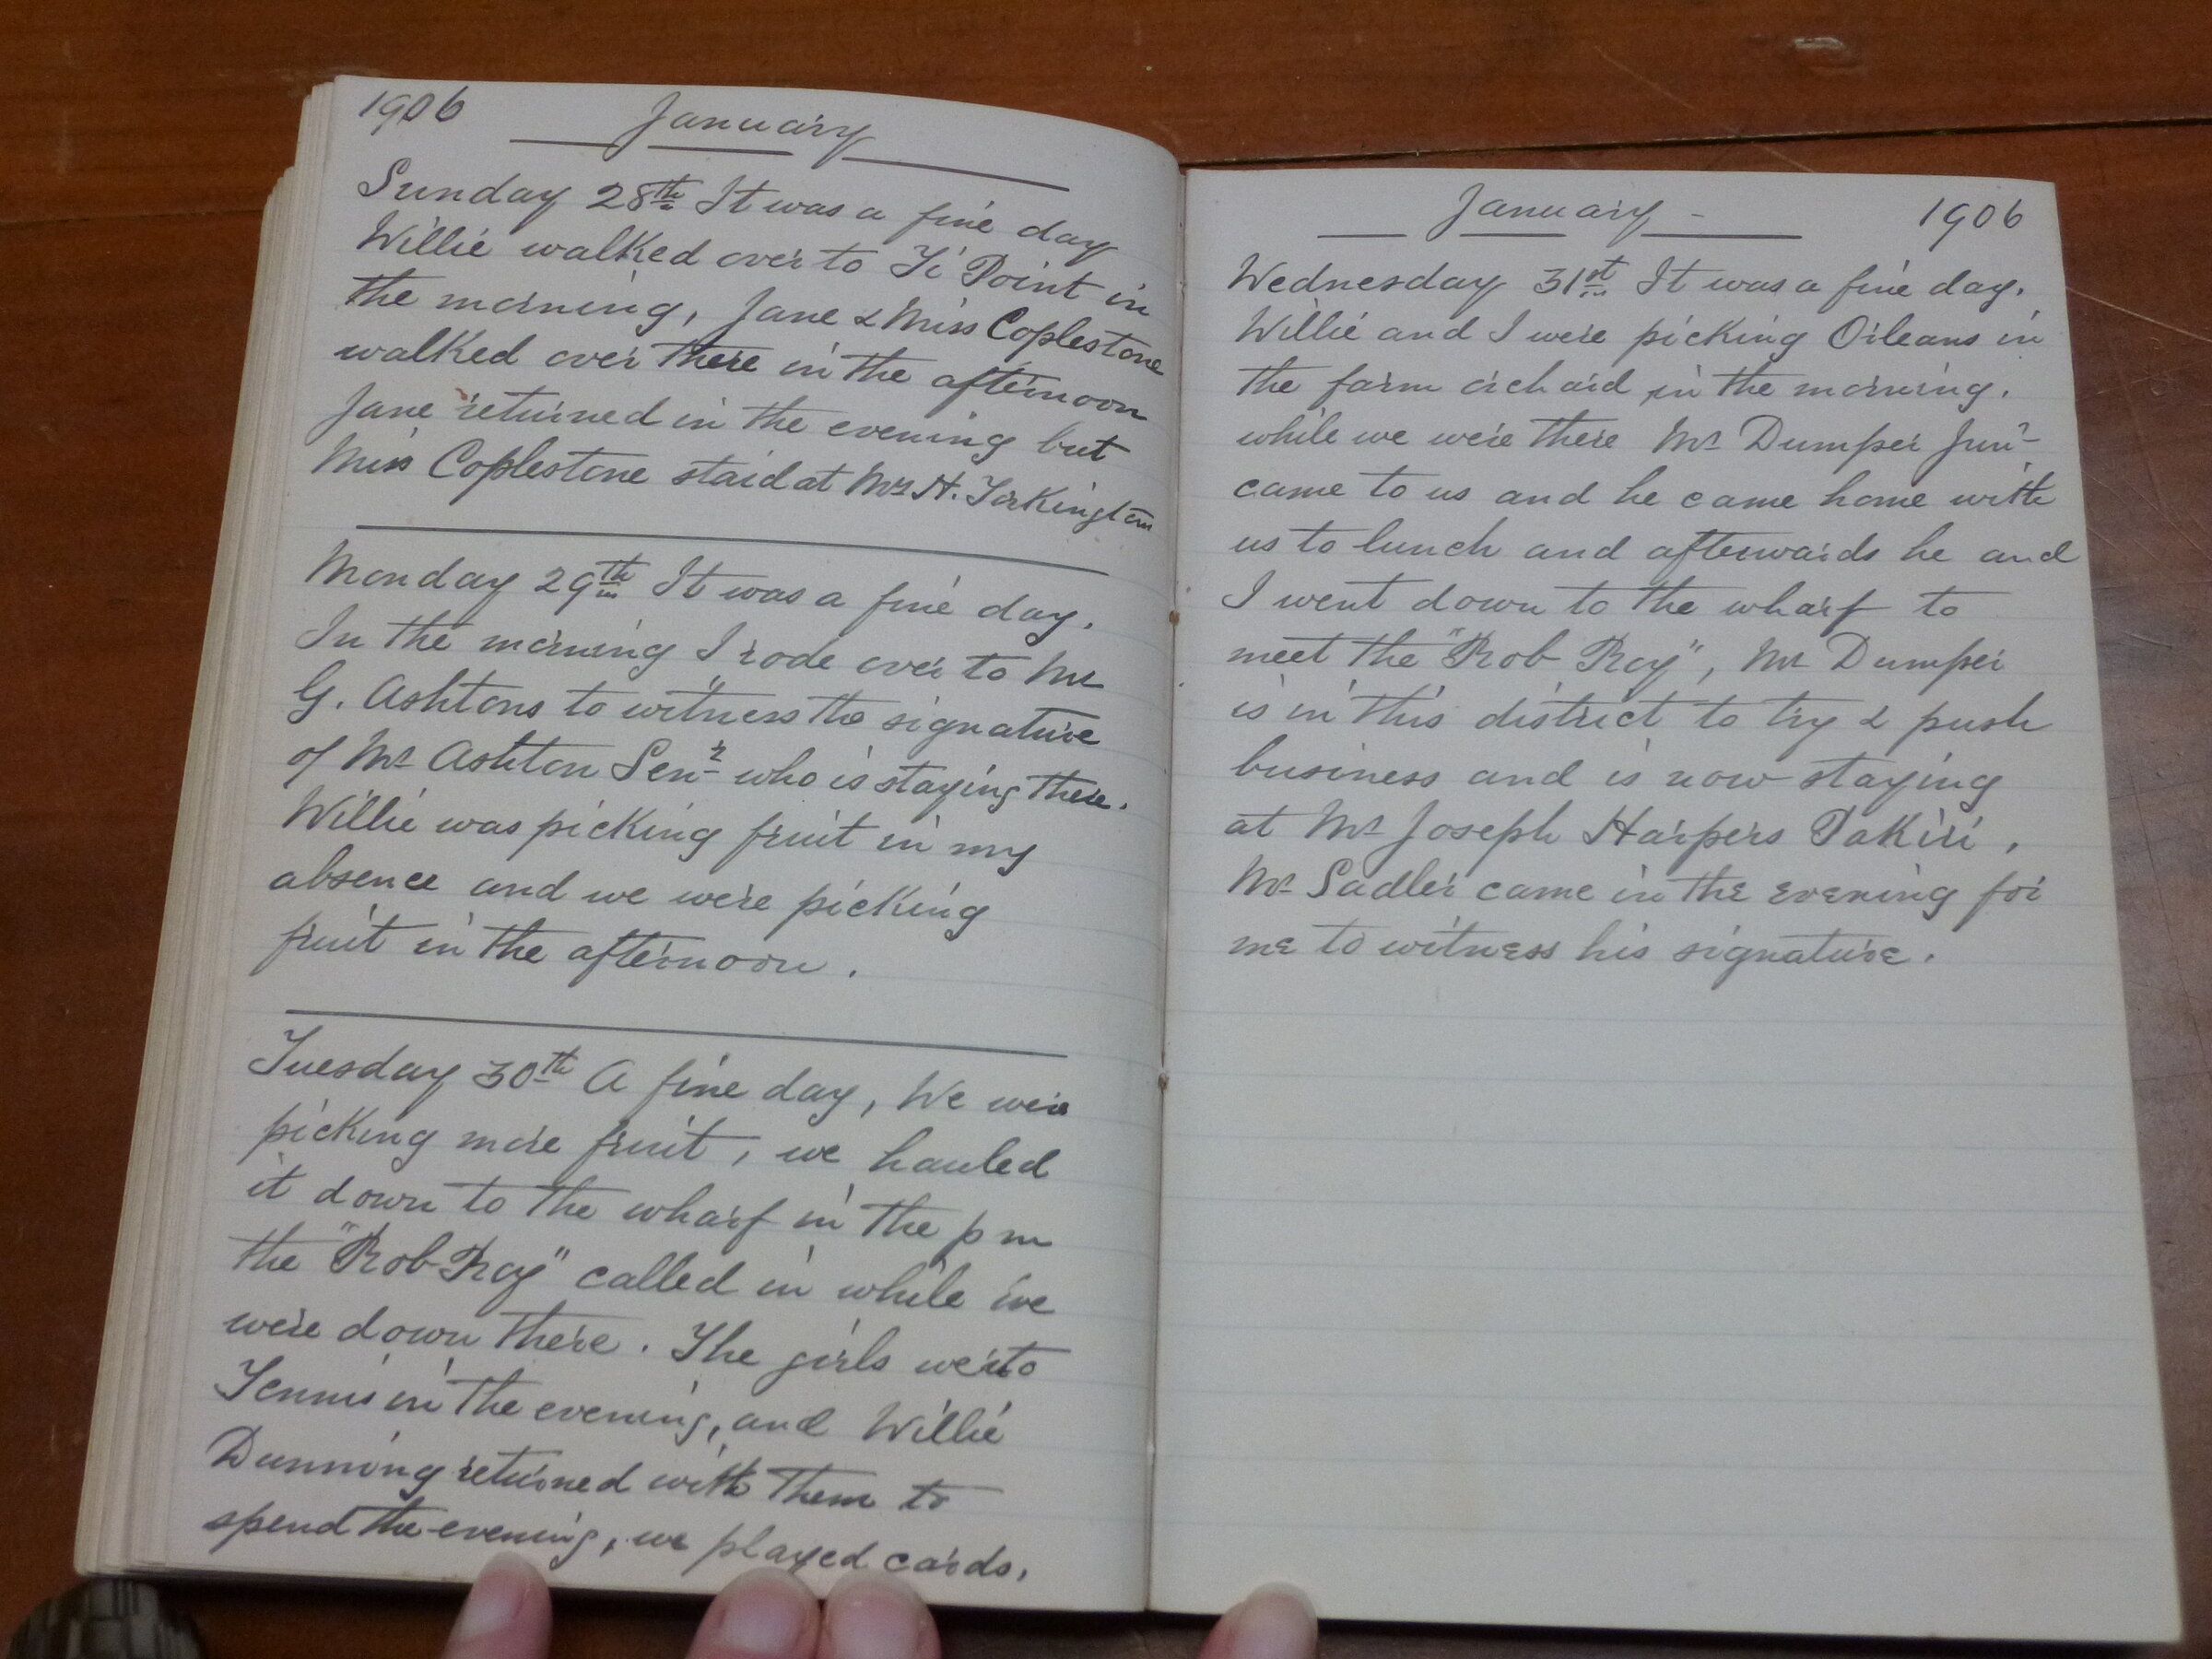 1906 January
Sunday 28th It was a fine day
Willie walked over to Ti Point in
the morning, Jane & Miss Coplestone
walked over there in the afternoon
Jane returned in the evening but
Miss Coplestone staid at Mrs H. Torkington
Monday 29th It was a fine day.
In the morning I rode over to Mr
G. Ashtons to witness the signature
of Mr Ashton Senr who is staying there.
Willie was picking fruit in my
absence and we were picking
fruit in the afternoon.
Tuesday 30th A fine day, We were
picking more fruit, we hauled
it down to the wharf in the pm
the "Rob-Roy" called in while we
were down there. The girls went to
Tennis in the evening, and Willie
Dunning returned with them to
spend the evening, we played cards.
January - 1906
Wednesday 31st It was a fine day.
Willie and I were picking Orleans in
the farm orchard in the morning.
while we were there Mr Dumper Junr
came to us and he came home with
us to lunch and afterwards he and
I went down to the wharf to
meet the "Rob Roy", Mr Dumper
is in this district to try & push
business and is now staying
at Mr Joseph Harpers Pakiri,
Mr Sadler came in the evening for
me to witness his signature.